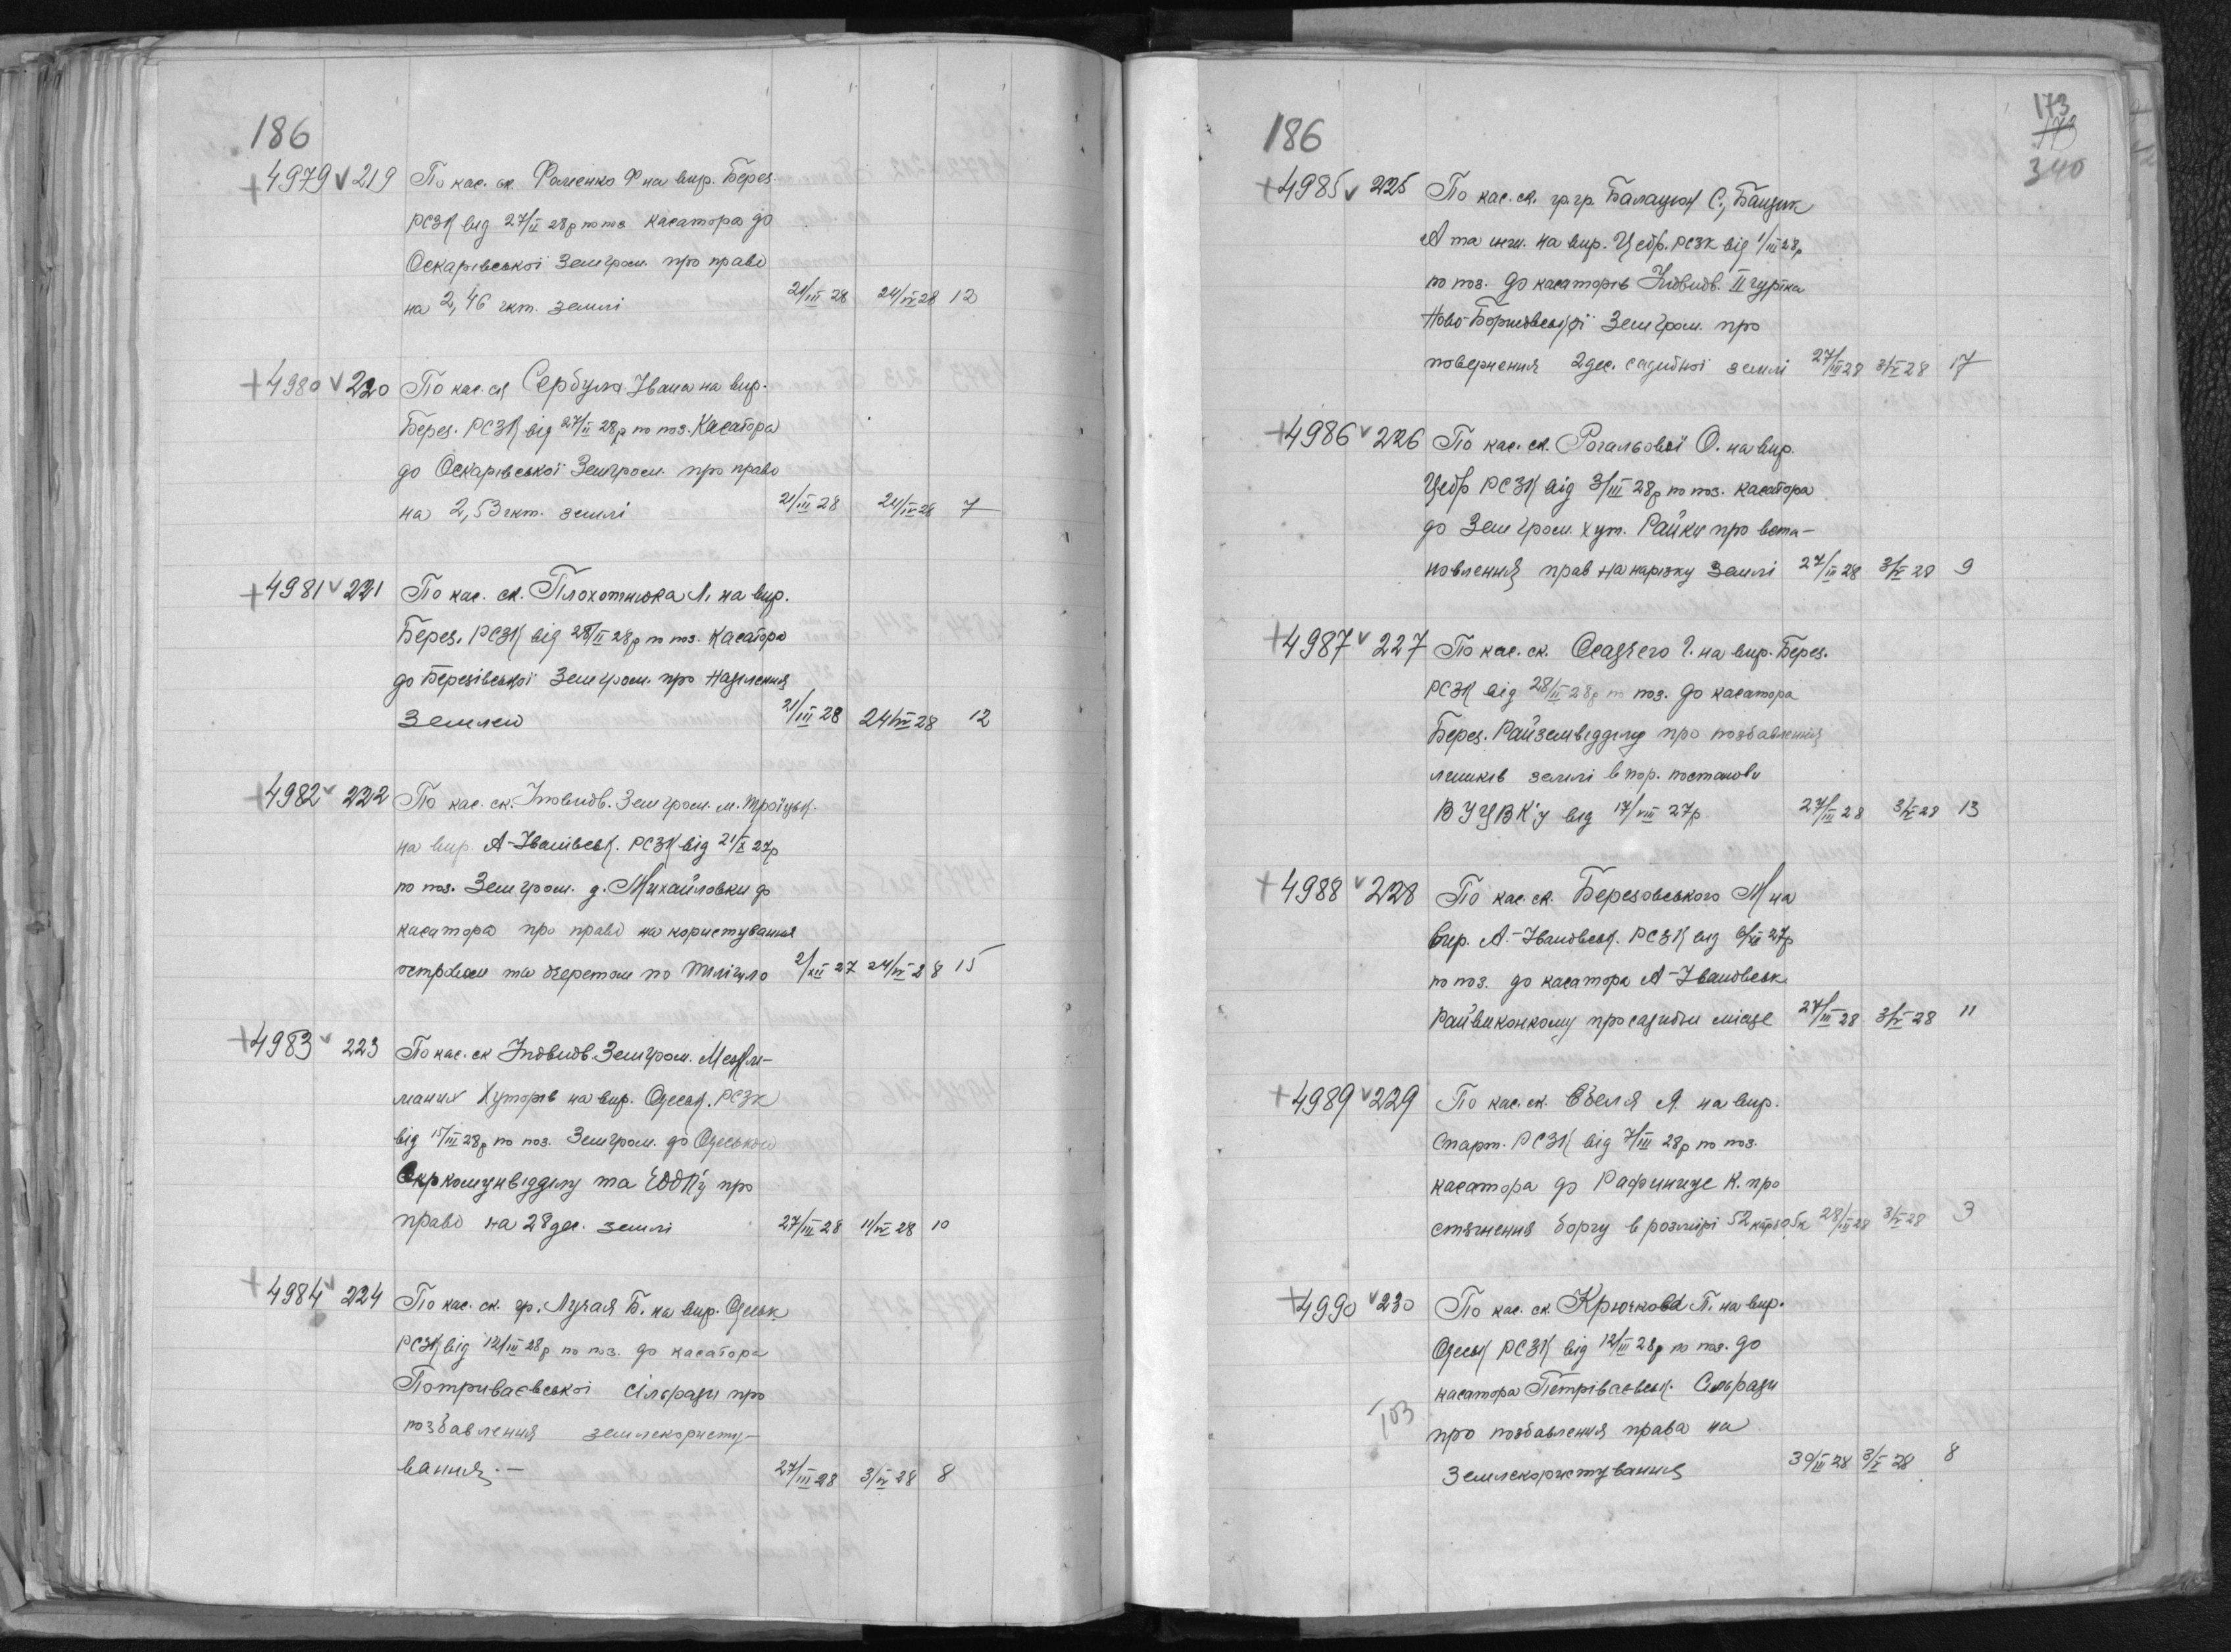 186
4979 219 По кас. ск. Фоменко Ф на вир. Берез.
РСЗК від 27/II 28р по поз. касатора до
Оскарівської Земгром. про право
на 2,46 гкт. землі 21/III 28 24/IV 28 12
4980 220 По кас. ск Сербула Івана на вир.
Берез. РСЗК від 27/II 28р по поз. Касатора
до Оскарівської Земгром. про право
на 2,53 гкт. землі 21/III 28 24/IV 28 7
4981 221 По кас. ск. Плохотнюка Л. на вир.
Берез. РСЗК від 28/II 28р по поз. Касатора
до Березівської Земгром. про наділення
землею 21/III 28 24/IV 28 12
4982 222 По кас. ск. Земгром. м. Троїцьк.
на вир. А-Іванівськ. РСЗК від 21/X 27р
по поз. Земгром. д. Михайловки до
касатора про право на користування
островом та очеретом по Тилігуло 2/XII 27 24/IV 28 15
4983 223 По кас. ск Індивідв. Земгром.
Хуторів на вир. Одеськ. РСЗК
від 15/III 28р по поз. Земгром. до Одеського
Окркомунвідділу та про
право на 28 дес. землі 27/III 28 11/IV 28 10
4984 224 По кас. ск. гр. Лучая Б. на вир. Одеськ.
РСЗК від 12/III 28р по поз. до касатора
Потриваєвської сільради про
позбавлення землекористу-
вання. — 27/III 28 3/IV 28 8
186
173
340
4985 225 По кас. ск. гр.гр. С.,
А та инш. на вир. Цебр. РСЗК від 1/III 28р
по поз. до касаторів Індивідв. II гуртка
Ново-Борисовської Земгром. про
повернення 2 дес. садибної землі 27/III 28 3/V 28 17
4986 226 По кас. ск. Рогальової О. на вир.
Цебр РСЗК від 3/III 28р по поз. касатора
до Земгром. хут. Райки про вста-
новлення прав на нарізку землі 27/III 28 3/V 28 9
4987 227 По кас. ск. Осадчего Г. на вир. Берез.
РСЗК від 28/II 28р по поз. до касатора
Берез. Райземвідділу про позбавлення
лишків землі в пор. постанови
ВУЦВК'у від 17/VIII 27р 27/III 28 3/V 28 13
4988 228 По кас. ск. Березовського М на
вир. А-Івановськ. РСЗК від 6/XII 27р
по поз. до касатора А-Івановськ
Райвиконкому про садибне місце 27/III 28 3/V 28 11
4989 229 По кас. ск. А. на вир.
Спарт. РСЗК від 7/III 28р по поз.
касатора до К. про
стягнення боргу в розмірі 52 28/III 28 3/V 28 3
4990 230 По кас. ск. Крючкова П. на вир.
Одеськ РСЗК від 12/III 28р по поз. до
касатора Петріваєвськ. Сільради
103
про позбавлення права на
землекористування 30/III 28 3/V 28 8